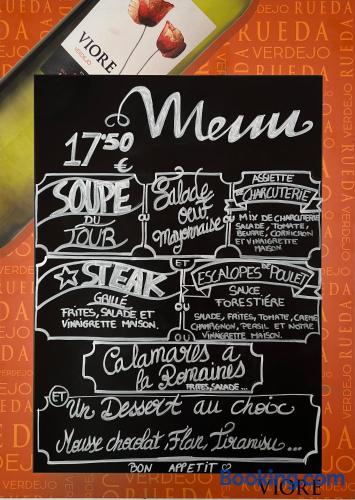 VIORE
VERDEJO
RUEDA
Menu
17'50 €
SOUPE
DU
JOUR
OU
Salade
oeuf
Mayonnaise
OU
ASSIETTE
DE CHARCUTERIE
MIX DE CHARCUTERIE
SALADE, TOMATE,
BEURRE, CORNICHON
ET VINAIGRETTE
MAISON.
ET
STEAK
GRILLÉ
FRITES, SALADE ET
VINAIGRETTE MAISON.
OU
ESCALOPES DE POULET
SAUCE
FORESTIÈRE
SALADE, FRITES, TOMATE, CREME
CHAMPIGNON, PERSIL ET NOTRE
VINAIGRETTE MAISON.
OU
Calamares a
la Romaines
FRITES, SALADE...
ET
Un Dessert au choix
Mousse chocolat, Flan, Tiramisu...
BON APPETIT
VIORE
Booking.com